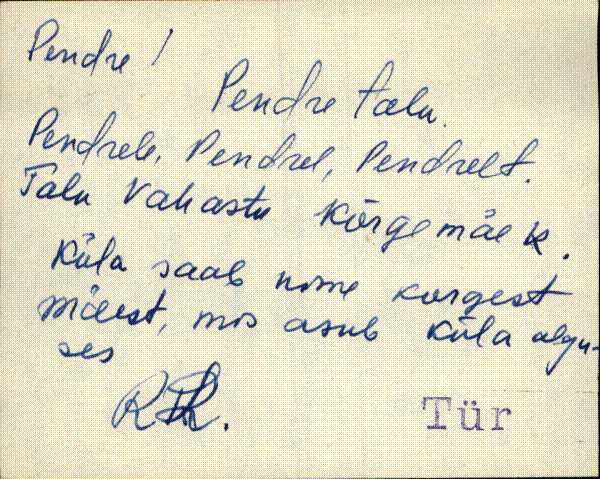 Pendre!
Pendre talu.
Pendrele, Pendrel, Pendrelt.
Talu Vahastu Kõrgemäe k.
Küla saab nime kõrgest
mäest, mis asub küla algu-
ses
Tür